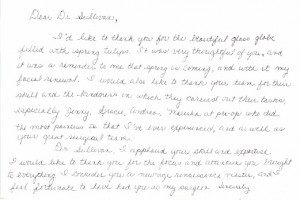 Dear Dr. Sullivan,
I'd like to thank you for the beautiful glass globe
filled with spring tulips. It was very thoughtful of you, and
it was a reminder to me that spring is coming, and with it my
facial renewal. I would also like to thank your team for their
skill and the kindness in which they carried out their tasks,
especially Jenny, Gracie, Andrea, Marsha at pre-op who did
the most painless IV that I've ever experienced, and as well as
your great surgical team.
Dr. Sullivan, I applaud your skill and expertise.
I would like to thank you for the focus and attention you brought
to everything. I consider you a renaissance master, and I
feel fortunate to have had you as my surgeon. Sincerely